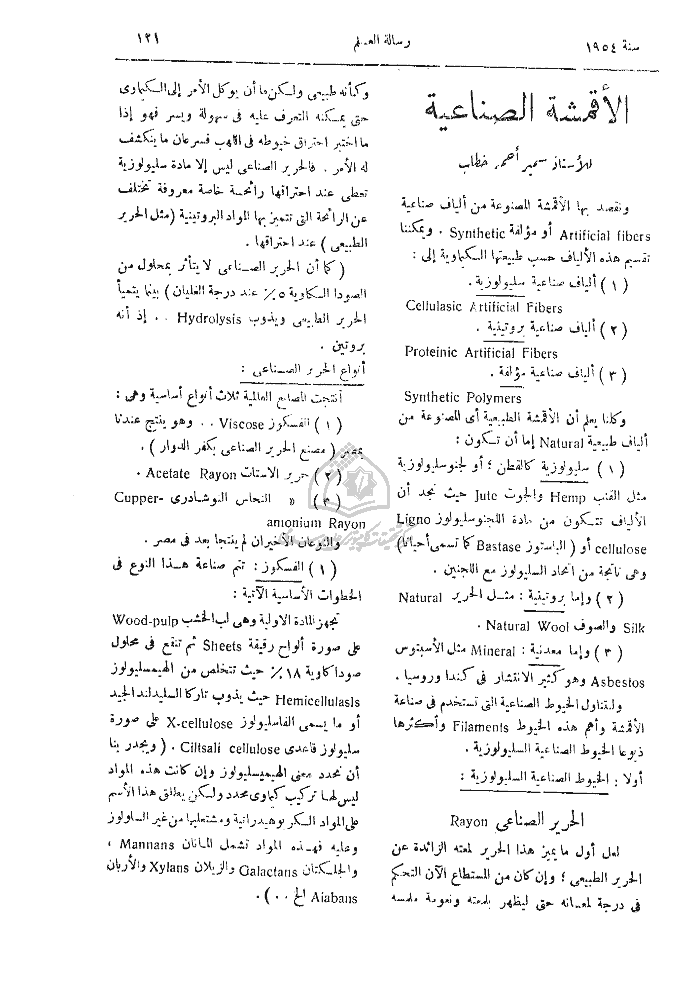 سنة ١٩٥٤
رسالة العلم
١٢١
الأقمشة الصناعية
للأستاذ سمير أحمد خطاب
ونقصد بها الأقمشة المصنوعة من ألياف صناعية
Artificial fibers أو مؤلفة Synthetic . ويمكننا
تقسيم هذه الألياف حسب طبيعتها الكيماوية إلى :
( ١ ) ألياف صناعية سليولوزية .
Cellulasic Artificial Fibers
( ٢ ) ألياف صناعية بروتينية .
Proteinic Artificial Fibers
( ٣ ) ألياف صناعية مؤلفة .
Synthetic Polymers
وكلنا يعلم أن الأقمشة الطبيعية أى المصنوعة من
ألياف طبيعية Natural إما أن تكون :
( ١ ) سليولوزية كالقطن ؛ أو لجنوسليولوزية
مثل القنب Hemp والجوت Jute حيث نجد أن
الألياف تتكون من مادة اللجنوسليولوز Ligno
cellulose أو ( الباستوز Bastase كما تسمى أحيانا)
وهى ناتجة من اتحاد السليولوز مع اللجنين .
( ٢ ) وإما بروتينية : مثل الحرير Natural
Silk والصوف Natural Wool .
( ٣ ) وإما معدنية : Mineral مثل الأسبتوس
Asbestos وهو كثير الانتشار فى كندا وروسيا .
ولنتناول الخيوط الصناعية التى تستخدم فى صناعة
الأقمشة وأهم هذه الخيوط Filaments وأكثرها
ذيوعا الخيوط الصناعية السليولوزية .
أولا : الخيوط الصناعية السليولوزية :
الحرير الصناعى Rayon
لعل أول ما يميز هذا الحرير لمعته الزائدة عن
الحرير الطبيعى ؛ وإن كان من المستطاع الآن التحكم
فى درجة لمعانه حتى ليظهر بلمعته ونعومة ملمسه
وكأنه طبيعى ولكن ما أن يوكل الأمر إلى الكيماوى
حتى يمكنه التعرف عليه فى سهولة ويسر فهو إذا
ما اختبر احتراق خيوطه فى اللهب فسرعان ما ينكشف
له الأمر . فالحرير الصناعى ليس إلا مادة سليولوزية
تعطى عند احتراقها رائحة خاصة معروفة تختلف
عن الرائحة التى تتميز بها المواد البروتينية (مثل الحرير
الطبيعى ) عند احتراقها .
( كما أن الحرير الصناعى لا يتأثر بمحلول من
الصودا الكاوية ٥٪ عند درجة الغليان ) بينما يتميأ
الحرير الطبيعى ويذوب Hydrolysis . . إذ أنه
بروتين .
أنواع الحرير الصناعى :
أنتجت المصانع العالمية ثلاث أنواع أساسية وهى :
( ١ ) الفسكوز Viscose . . وهو ينتج عندنا
بمصر ( مصنع الحرير الصناعى بكفر الدوار ) .
( ٢ ) حرير الاستات Acetate Rayon .
( ٣ ) » النحاس النوشادرى Cupper-
amonium Rayon
والنوعان الأخيران لم ينتجا بعد فى مصر .
( ١ ) الفسكوز : تتم صناعة هذا النوع فى
الخطوات الأساسية الآتية :
تجهز المادة الاولية وهى لب الخشب Wood-pulp
على صورة ألواح رقيقة Sheets ثم تنقع فى محلول
صودا كاوية ١٨٪ حيث تتخلص من الهيمسيلولوز
Hemicellulasis حيث يذوب تاركا السليداند الجيد
أو ما يسمى الفاسليولوز X-cellulose على صورة
سليولوز قاعدى Ciltsali cellulose . ( ويجدر بنا
أن نحدد معنى الهيميسليولوز وإن كانت هذه المواد
ليس لها تركيب كيماوى محدد ولكن يطلق هذا الأسم
على المواد السكر بوهيدراتية ومشتقاتها من غير الساولوز
وعليه فهذه المواد تشمل المانان Mannans ،
والجلكتان Galactans والزيلان Xylans والأربان
Aiabans الخ . . ) .